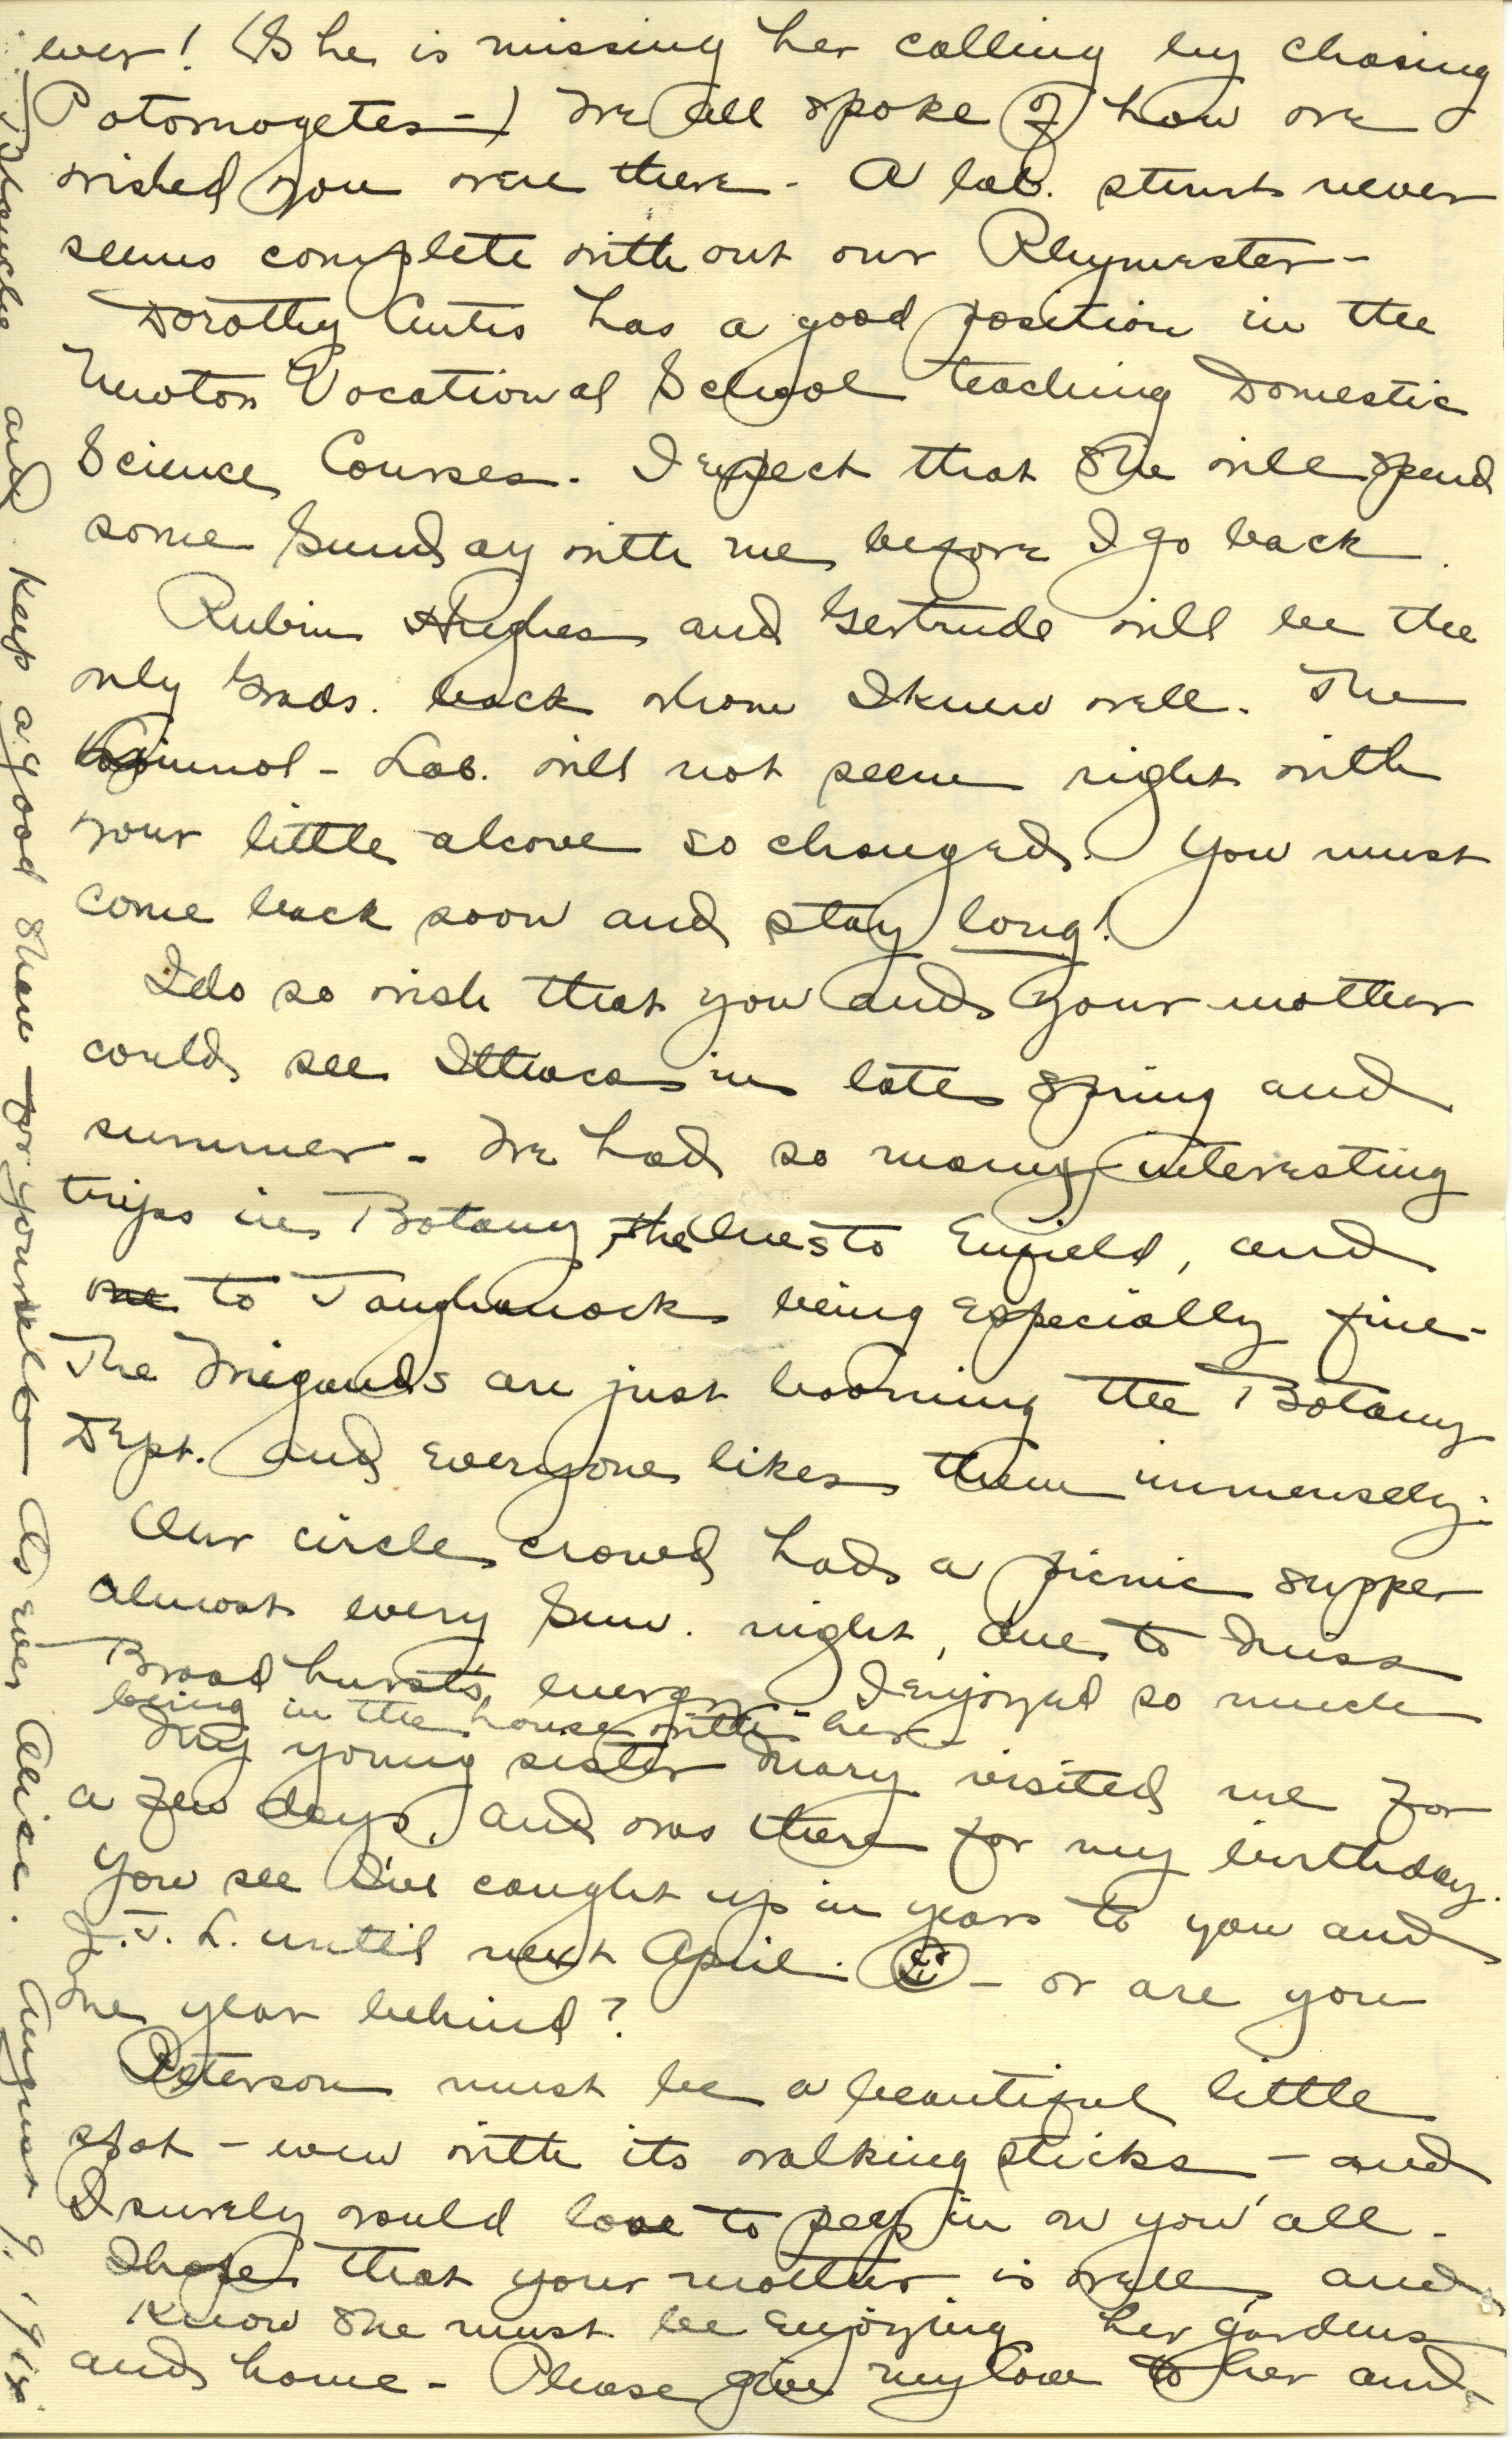 ever! (She is missing her calling by chasing
Potomogetes-) We all spoke of how we
wished you were there - A lab. stunt never
seems complete without our Rhymester -
Dorothy Curtis has a good position in the
Newton Vocational School teaching Domestic
Science Courses. I expect that she will spend
some Sunday with me before I go back.
Rubin Hughes and Gertrude will be the
only Grads. back whom I knew well. The
Limnol - Lab. will not seem right with
your little alcove so changed. You must
come back soon and stay long!
I do so wish that you and your mother
could see Ithaca in late spring and
summer - We had so many interesting
trips in Botany, the ones to Enfield, and
to Taughanock being especially fine -
The Wiegands are just booming the Botany
Dept. and everyone likes them immensely.
Our circle crowd had a picnic supper
almost every Sun. night, due to Miss
Broadhurst's energy - I enjoyed so much
being in the house with her -
My young sister Mary visited me for
a few days, and was there for my birthday.
You see I've caught up in years to you and
J. L. until next April. - or are you
one year behind?
Peterson must be a beautiful little
spot - even with its walking sticks - and
I surely would love to peep in on you all -
I hope that your mother is well, and
know she must be enjoying her gardens
and home - Please give my love to her and
Blanche and keep a good share for yourself - As ever Alice. August 9, 1918.